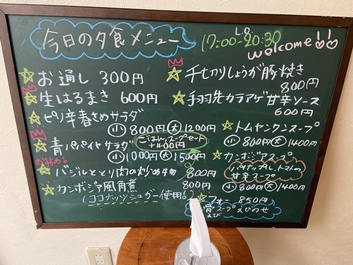 今日の夕食メニュー
17:00-20:30
L.O
welcome!!
お通し 300円
生はるまき 600円
ピリ辛春さめサラダ
小 800円 大 1200円
ごはん、スープセット
+400円
青パパイヤサラダ
小 1000円 大 1500円
バジルととり肉の炒め物
800円
カンボジア風角煮 800円
(ココナッツシュガー使用)
千切りしょうが豚焼き
800円
手羽先カラアゲ甘辛ソース
600円
トムヤンクンスープ
小 800円 大 1400円
カンボジアスープ
パイナップルとトマトの
甘ずっぱスープ
小 800円 大 1400円
フォー 850円